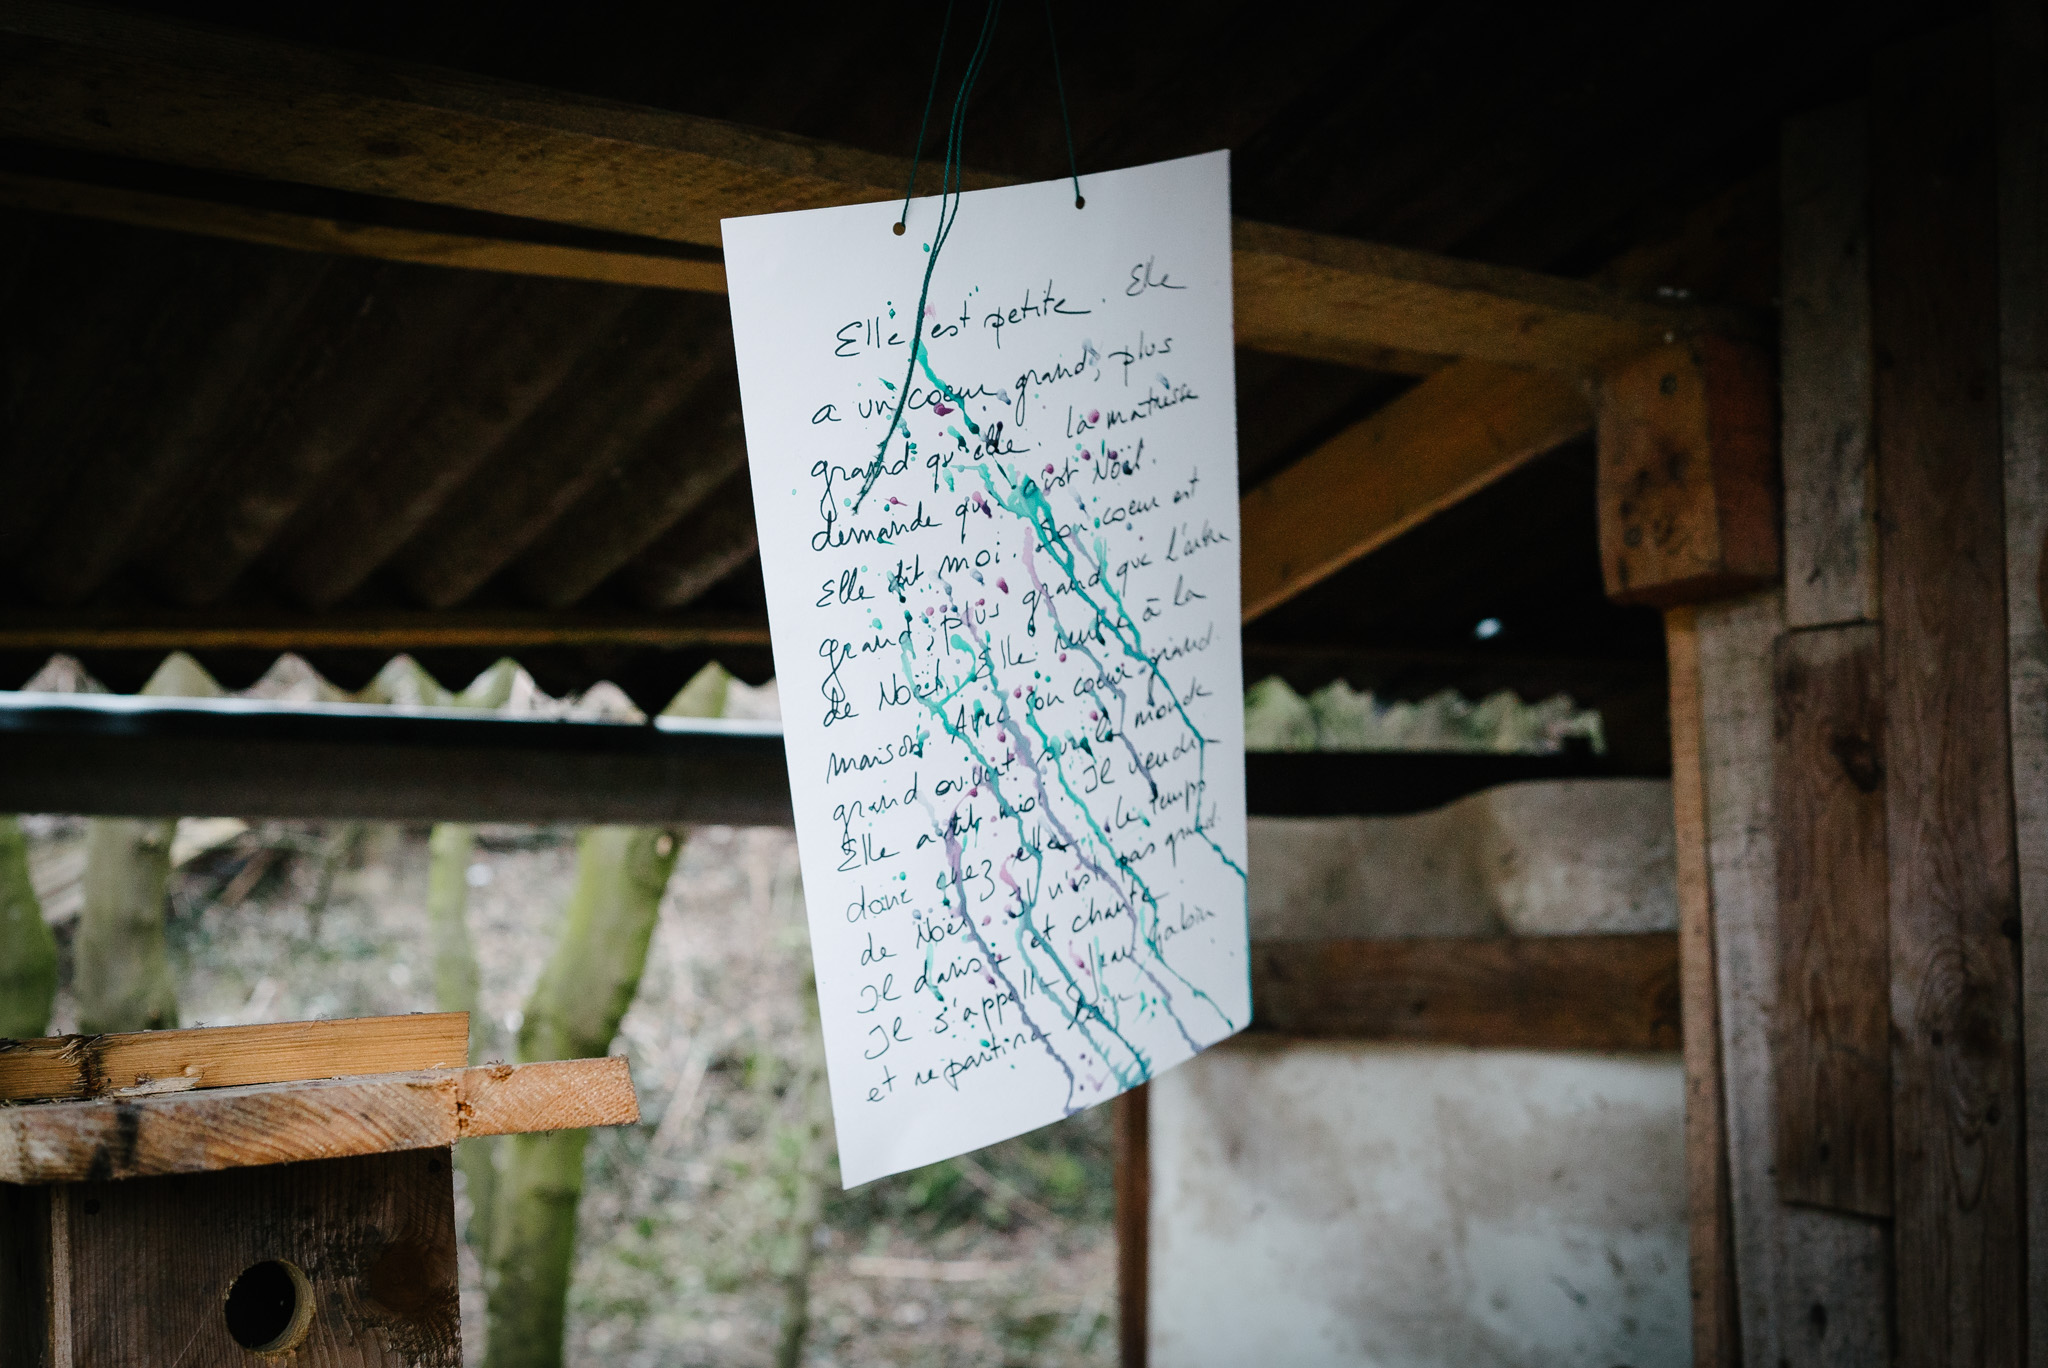 Elle est petite. Elle
a un coeur grand, plus
grand qu'elle. La maîtresse
demande qui c'est Noël.
Elle dit moi. Son coeur est
grand, plus grand que l'arbre
de Noël. Elle rentre à la
maison. Avec son coeur grand
grand ouvert sur le monde
Elle a dit moi. Il viendra
donc chez elle le temps
de Noël. Il n'est pas grand.
Il danse et chante
Il s'appelle Jean
et repartira loin